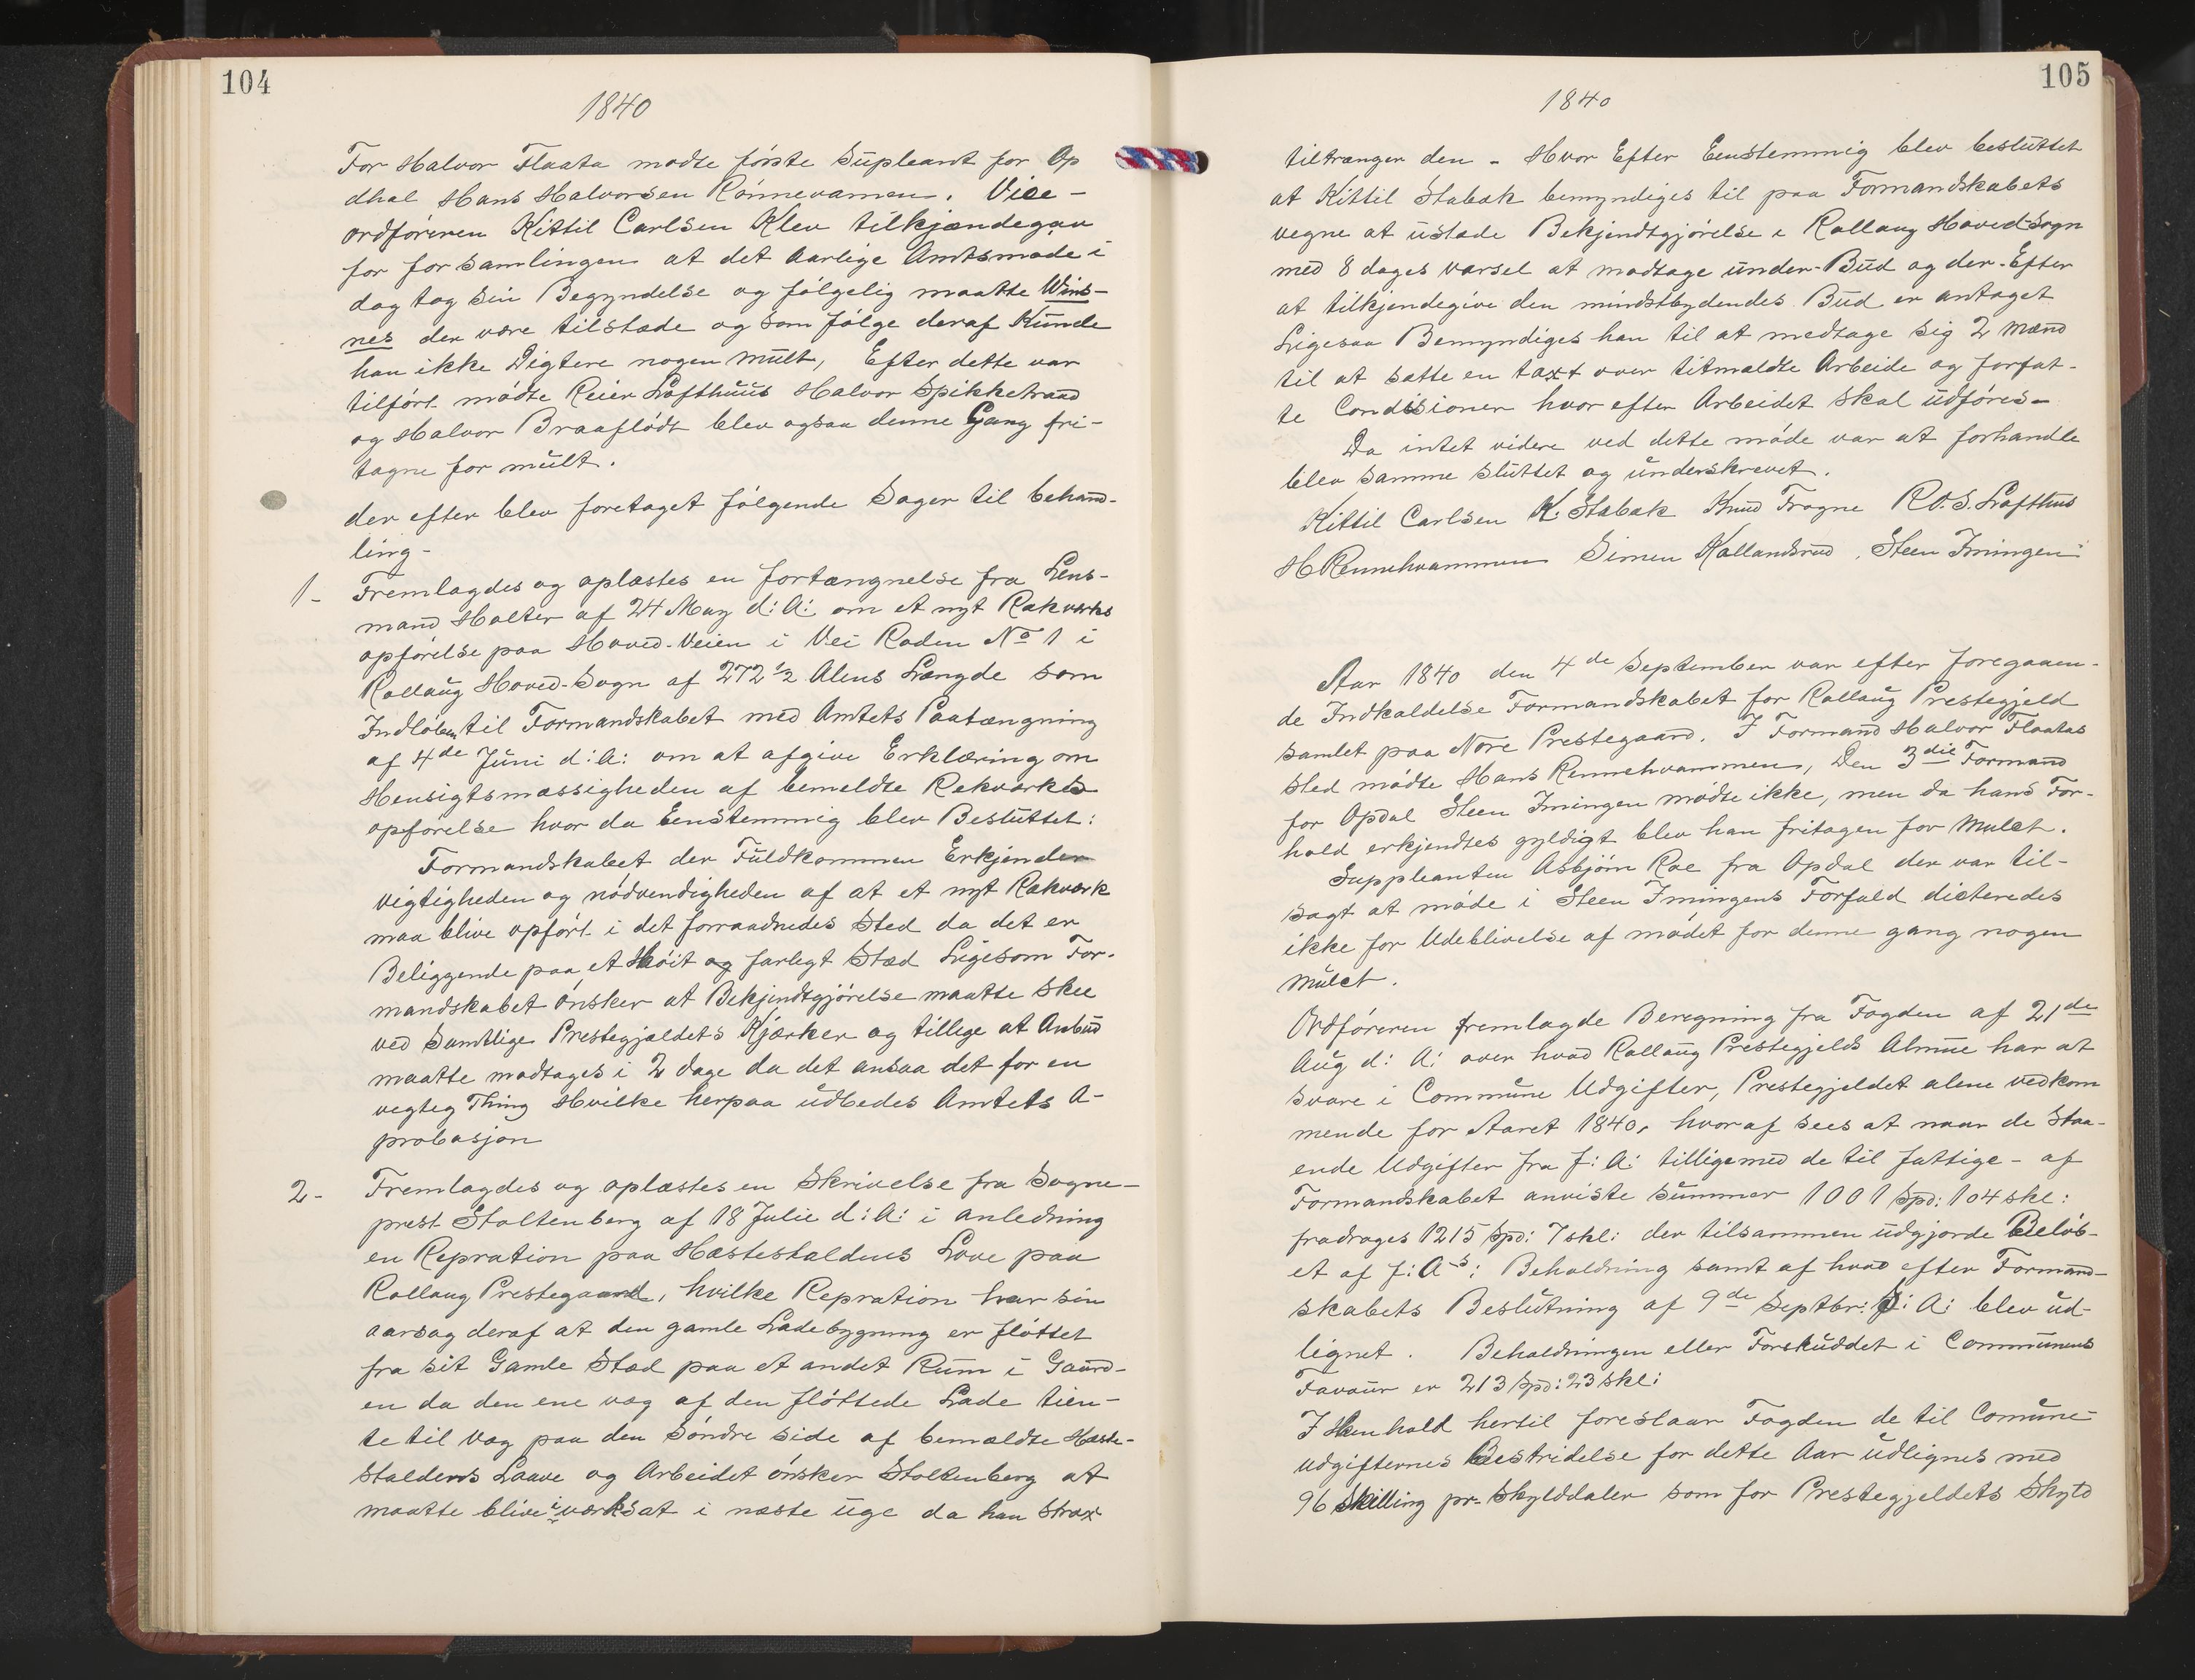 104
1840
For Halvor Flaata modte første Supleant for Op
dhal Hans Halvorsen Rønnevamen. Vice-
ordføreren Kittil Carlsen Klev tilkjændegav
for forsamlingen at det Aarlige Amtsmøde i
dag tog sin Begyndelse og følgelig maatte Wins-
nes der være tilstæde og som følge deraf Kunde
han ikke Digtere nogen Mult, Efter dette var
tilført mødte Reier Lofthuus Halvor Spikketvand
og Halvor Braaflødt blev ogsaa denne Gang fri-
tagne for mult.
der efter blev foretaget følgende Sager til behand-
ling-
1- Fremlagdes og oplæstes en fortængnelse fra Lens-
mand Holter af 24 May d: A: om et nyt Rækværks
opførelse paa Hoved-Veien i Vei Roden No 1 i
Rollaug Hoved-Sogn af 272 1/2 Alens Længde som
Indløben til Formandskabet med Amtets Paatængning
af 4de Juni d: A: om at afgive Erklæring om
Hensigtsmæssigheden af bemeldte Rekværks
opførelse hvor da Eenstemmig blev Besluttet:
Formandskabet der Fuldkommen Erkjender
vigtigheden og nødvendigheden af at et nyt Rækværk
maa blive opført i det forraadnedes Sted da det er
Beliggende paa et Høit og farlegt Stæd Ligesom For-
mandskabet ønsker at Bekjendtgjørelse maatte skee
ved Samtlige Prestegjældets Kjærker og tillige at Anbud
maatte modtages i 2 dage da det ansaa det for en
vegteg Thing Hvilke herpaa udbedes Amtets A-
probasjon
2- Fremlagdes og oplæstes en Skrivelse fra Sogne-
prest Stoltenberg af 18 Julie d: A: i anledning
en Repration paa Hæstestaldens Love paa
Rollaug Prestegaard, hvilke Repration har sin
aarsag deraf at den gamle Ladebygning er fløttet
fra sit Gamle Stæd paa et andet Rum i Gaard-
en da den ene væg af den fløttede Lade tien-
te til Væg paa den Søndre side af bemældte Hæste-
staldens Laave og Arbeidet ønsker Stoltenberg at
maatte blive iværksat i næste uge da han Strax
105
1840
tiltrænger den - Hvor Efter Eenstemmig blev besluttet
at Kittil Stabæk bemyndiges til paa Formandskabets
vegne at ustæde Bekjendtgjørelse i Rollaug Hoved-Sogn
med 8 dages varsel at modtage under-Bud og der-Efter
at tilkjendegive den mindstbydendes Bud er antaget
Ligesaa Bemyndiges han til at medtage sig 2 Mænd
til at sætte en taxt over titmældte Arbeide og forfat-
te Condisioner hvor efter Arbeidet skal udføres-
Da intet videre ved dette møde var at forhandle
blev samme sluttet og underskrevet.
Kittil Carlsen K. Stabæk Knud Fragne R.O.S. Lofthus
H Rennehvammen Simen Kollandsrud. Steen Imingen
Aar 1840 den 4de September var efter foregaaen-
de Indkaldelse Formandskabet for Rollaug Prestegjeld
samlet paa Nore Prestegaard. I Formand Halvor Flaatas
sted mødte Hans Rennehvammen, Den 3die Formand
for Opdal Steen Imingen mødte ikke, men da hans For-
hold erkjendtes gyldigt blev han fritagen for Mulct.
Suppleanten Asbjørn Roe fra Opdal der var til-
sagt at møde i Steen Imingens Forfald dicteredes
ikke for Udeblivelse af mødet for denne gang nogen
Mulct.
Ordføreren fremlagde Beregning fra Fogden af 21de
Aug d: A: over hvad Rollaug Prestegjelds Almue har at
svare i Commune Udgifter, Prestegjeldet alene vedkom
mende for Aaret 1840, hvoraf sees at naar de Staa-
ende Udgifter fra f: A: tilligemed de til fattige- af
Formandskabet anviste Summer 1001 Spd: 104 skl:
fradrages 1215 Spd: 7 skl: der tilsammen udgjorde Beløb-
et af f: A-s: Beholdning samt af hvad efter Formand-
skabets Beslutning af 9de Septbr: f: A: blev ud-
lignet. Beholdningen eller Forskuddet i Communens
Favour er 213 Spd: 23 skl:
I Henhold hertil foreslaar Fogden de til Comune-
udgifternes Bestridelse for dette Aar udlignes med
96 Skilling pr. Skylddaler som for Prestegjeldets Skyld